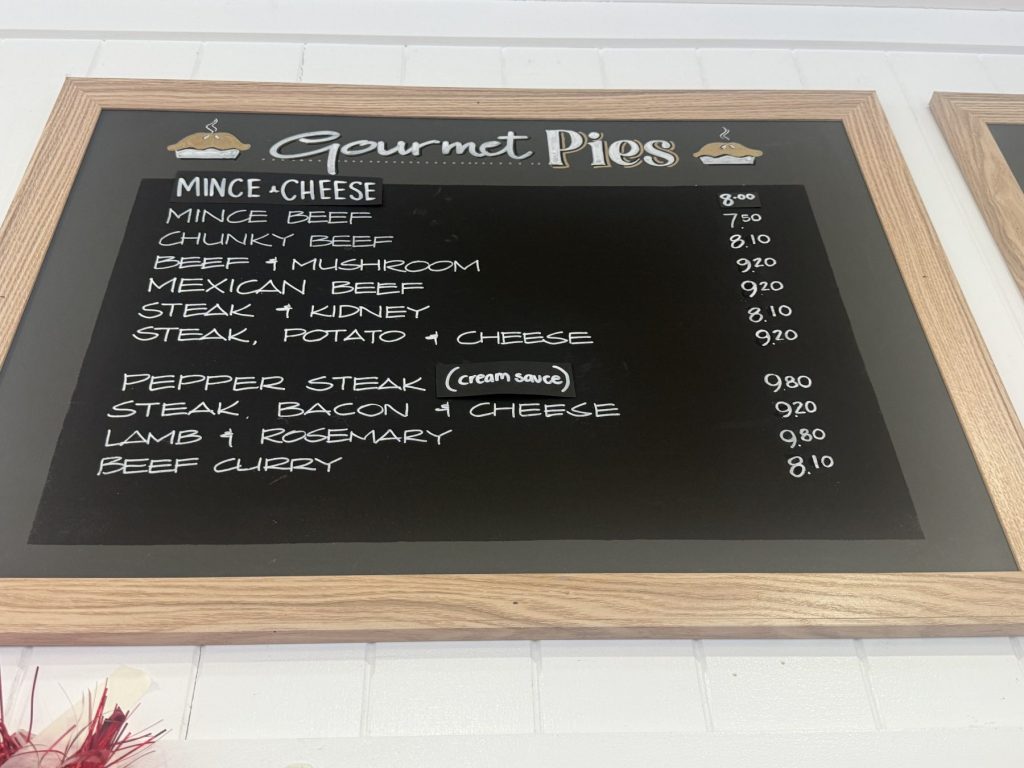 Gourmet Pies
MINCE & CHEESE 8.00
MINCE BEEF 7.50
CHUNKY BEEF 8.10
BEEF & MUSHROOM 9.20
MEXICAN BEEF 9.20
STEAK & KIDNEY 8.10
STEAK, POTATO & CHEESE 9.20
PEPPER STEAK (cream sauce) 9.80
STEAK, BACON & CHEESE 9.20
LAMB & ROSEMARY 9.80
BEEF CURRY 8.10